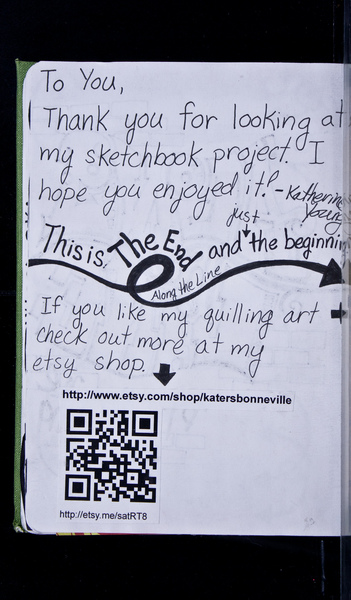 To You,
Thank you for looking at
my sketchbook project. I
hope you enjoyed it! - Katherine
Young
just
This is, The End and the beginnin
Along the Line
If you like my quilling art
check out more at my
etsy shop.
http://www.etsy.com/shop/katersbonneville
http://etsy.me/satRT8